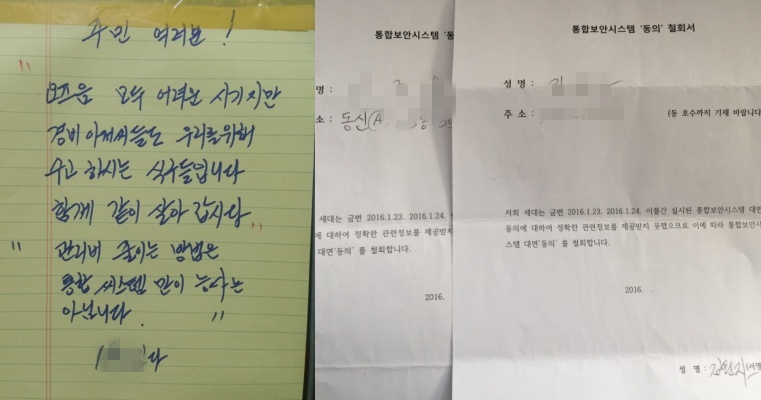 주민 여러분!
"요즈음 모두 어려운 시기지만
경비아저씨들도 우리를위해
수고 하시는 식구들입니다
함께 같이 살아 갑시다"
"관리비 줄이는 방법은
통합 씨스템 만이 능사는
아닙니다. "
다
통합보안시스템 '동
명 :
소 : 동신(A
세대는 금번 2016.1.23. 2016.1.24.
에 대하여 정확한 관련정보를 제공받지
템 대면'동의' 를 철회합니다.
2016.
통합보안시스템 '동의' 철회서
성 명 : 김
주 소 :
(동 호수까지 기재 바랍니다
저희 세대는 금번 2016.1.23. 2016.1.24. 이틀간 실시된 통합보안시스템 대면
동의에 대하여 정확한 관련정보를 제공받지 못했으므로 이에 따라 통합보안시
스템 대면'동의' 를 철회합니다.
2016. .
성 명 : (서명